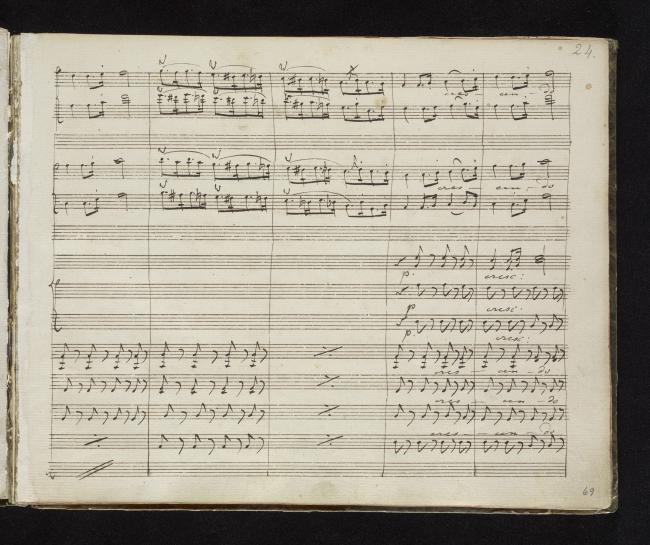 24.
cres - cen - do
cres - cen - do
p. cresc:
p cresc:
p. cresc:
cres - cen - do
cres - cen - do
cres - cen - do
69